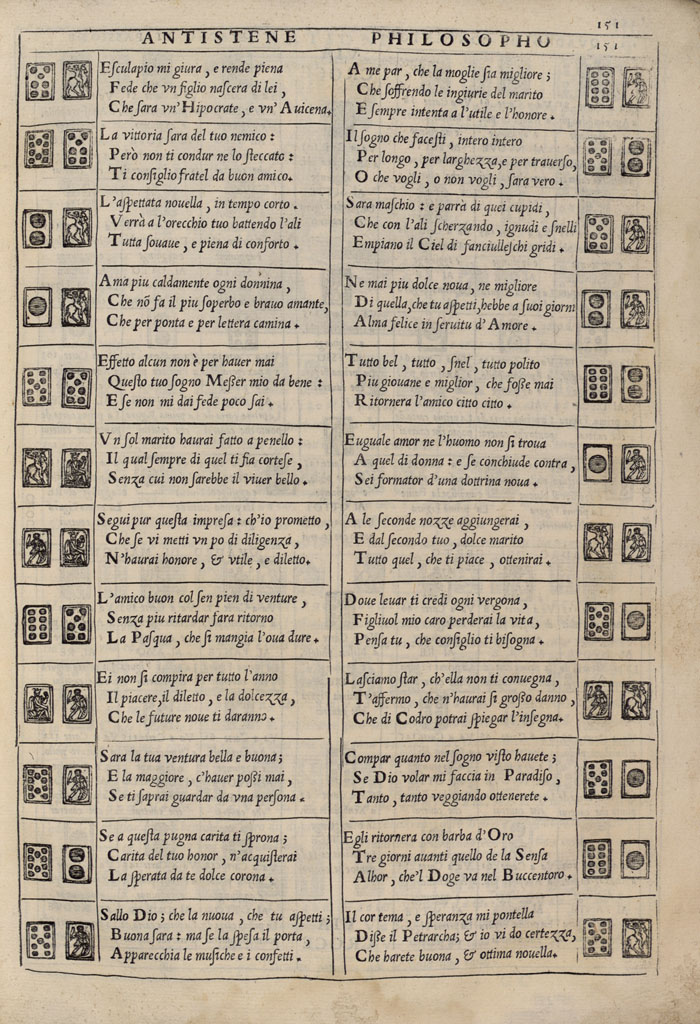 151
ANTISTENE PHILOSOPHO
151
Esculapio mi giura, e rende piena
Fede che vn figlio nascera di lei,
Che sara vn' Hipocrate, e vn' Auicena.
La vittoria sara del tuo nemico:
Però non ti condur ne lo steccato:
Ti consiglio fratel da buon amico.
L'aspettata nouella, in tempo corto.
Verrà a l'orecchio tuo battendo l'ali
Tutta souaue, e piena di conforto.
Ama piu caldamente ogni donnina,
Che nõ fa il piu soperbo e brauo amante,
Che per ponta e per lettera camina.
Effetto alcun non è per hauer mai
Questo tuo sogno Messer mio da bene:
E se non mi dai fede poco sai.
Vn sol marito haurai fatto a penello:
Il qual sempre di quel ti fia cortese,
Senza cui non sarebbe il viuer bello.
Segui pur questa impresa: ch'io prometto,
Che se vi metti vn po di diligenza,
N'haurai honore, & vtile, e diletto.
L'amico buon col sen pien di venture,
Senza piu ritardar fara ritorno
La Pasqua, che si mangia l'oua dure.
Ei non si compira per tutto l'anno
Il piacere, il diletto, e la dolcezza,
Che le future noue ti daranno.
Sara la tua ventura bella e buona;
E la maggiore, c'hauer possi mai,
Se ti saprai guardar da vna persona.
Se a questa pugna carita ti sprona;
Carita del tuo honor, n'acquisterai
La sperata da te dolce corona.
Sallo Dio; che la nuoua, che tu aspetti;
Buona sara: ma se la spesa il porta,
Apparecchia le musiche e i confetti.
A me par, che la moglie sia migliore;
Che soffrendo le ingiurie del marito
E sempre intenta a l'utile e l'honore.
Il sogno che facesti, intero intero
Per longo, per larghezza, e per trauerso,
O che vogli, o non vogli, sara vero.
Sara maschio: e parrà di quei cupidi,
Che con l'ali scherzando, ignudi e snelli
Empiano il Ciel di fanciulleschi gridi.
Ne mai piu dolce noua, ne migliore
Di quella, che tu aspetti, hebbe a suoi giorni
Alma felice in seruitu d'Amore.
Tutto bel, tutto, snel, tutto polito
Piu giouane e miglior, che fosse mai
Ritornera l'amico citto citto.
Euguale amor ne l'huomo non si troua
A quel di donna: e se conchiude contra,
Sei formator d'una dottrina noua.
A le seconde nozze aggiungerai,
E dal secondo tuo, dolce marito
Tutto quel, che ti piace, ottenirai.
Doue leuar ti credi ogni vergona,
Figliuol mio caro perderai la vita,
Pensa tu, che consiglio ti bisogna.
Lasciamo star, ch'ella non ti conuegna,
T'affermo, che n'haurai sì grosso danno,
Che di Codro potrai spiegar l'insegna.
Compar quanto nel sogno visto hauete;
Se Dio volar mi faccia in Paradiso,
Tanto, tanto veggiando ottenerete.
Egli ritornera con barba d'Oro
Tre giorni auanti quello de la Sensa
Alhor, che'l Doge va nel Buccentoro.
Il cor tema, e speranza mi pontella
Disse il Petrarcha; & io vi do certezza,
Che harete buona, & ottima nouella.